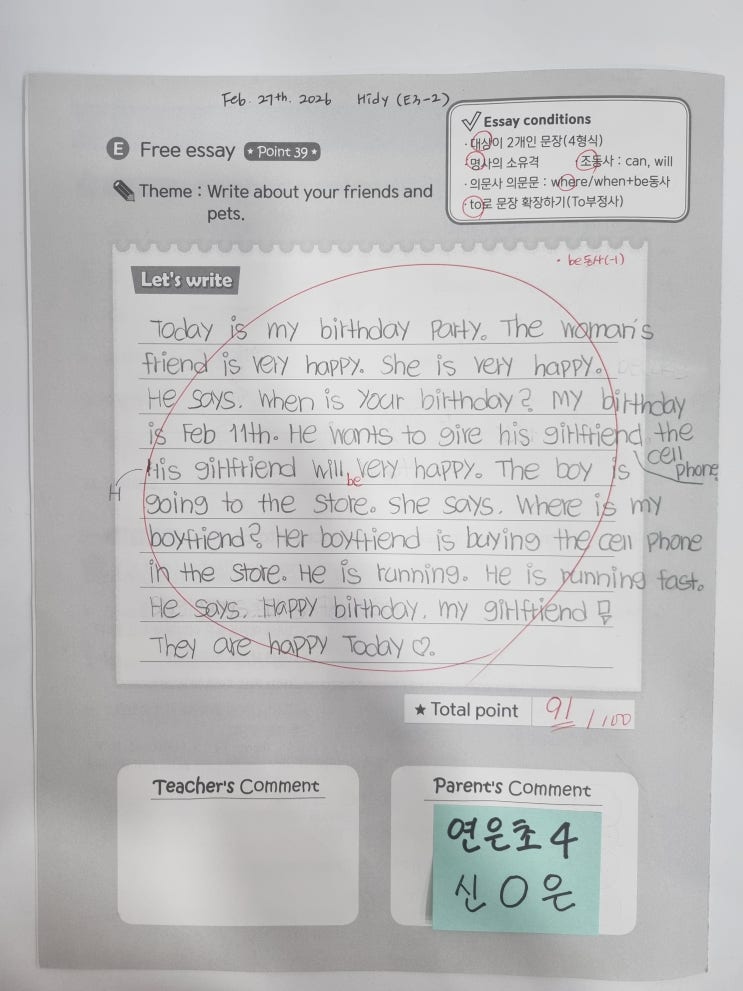 Feb. 27th. 2026 Hidy (E3-2)
Essay conditions
· 대상이 2개인 문장(4형식)
· 명사의 소유격 조동사 : can, will
· 의문사 의문문 : where/when+be동사
· to로 문장 확장하기(To부정사)
E Free essay ★ Point 39 ★
Theme : Write about your friends and
pets.
· be동사(-1)
Let's write
Today is my birthday party. The woman's
friend is very happy. She is very happy.
He says. When is your birthday? My birthday
is Feb 11th. He wants to give his girlfriend the
cell phone
H
His girlfriend will very happy. The boy is
be
going to the store. She says. Where is my
boyfriend? Her boyfriend is buying the cell phone
in the store. He is running. He is running fast.
He says. Happy birthday, my girlfriend!
They are happy Today ♡.
★ Total point 91 / 100
Teacher's Comment
Parent's Comment
연은초 4
신 O 은